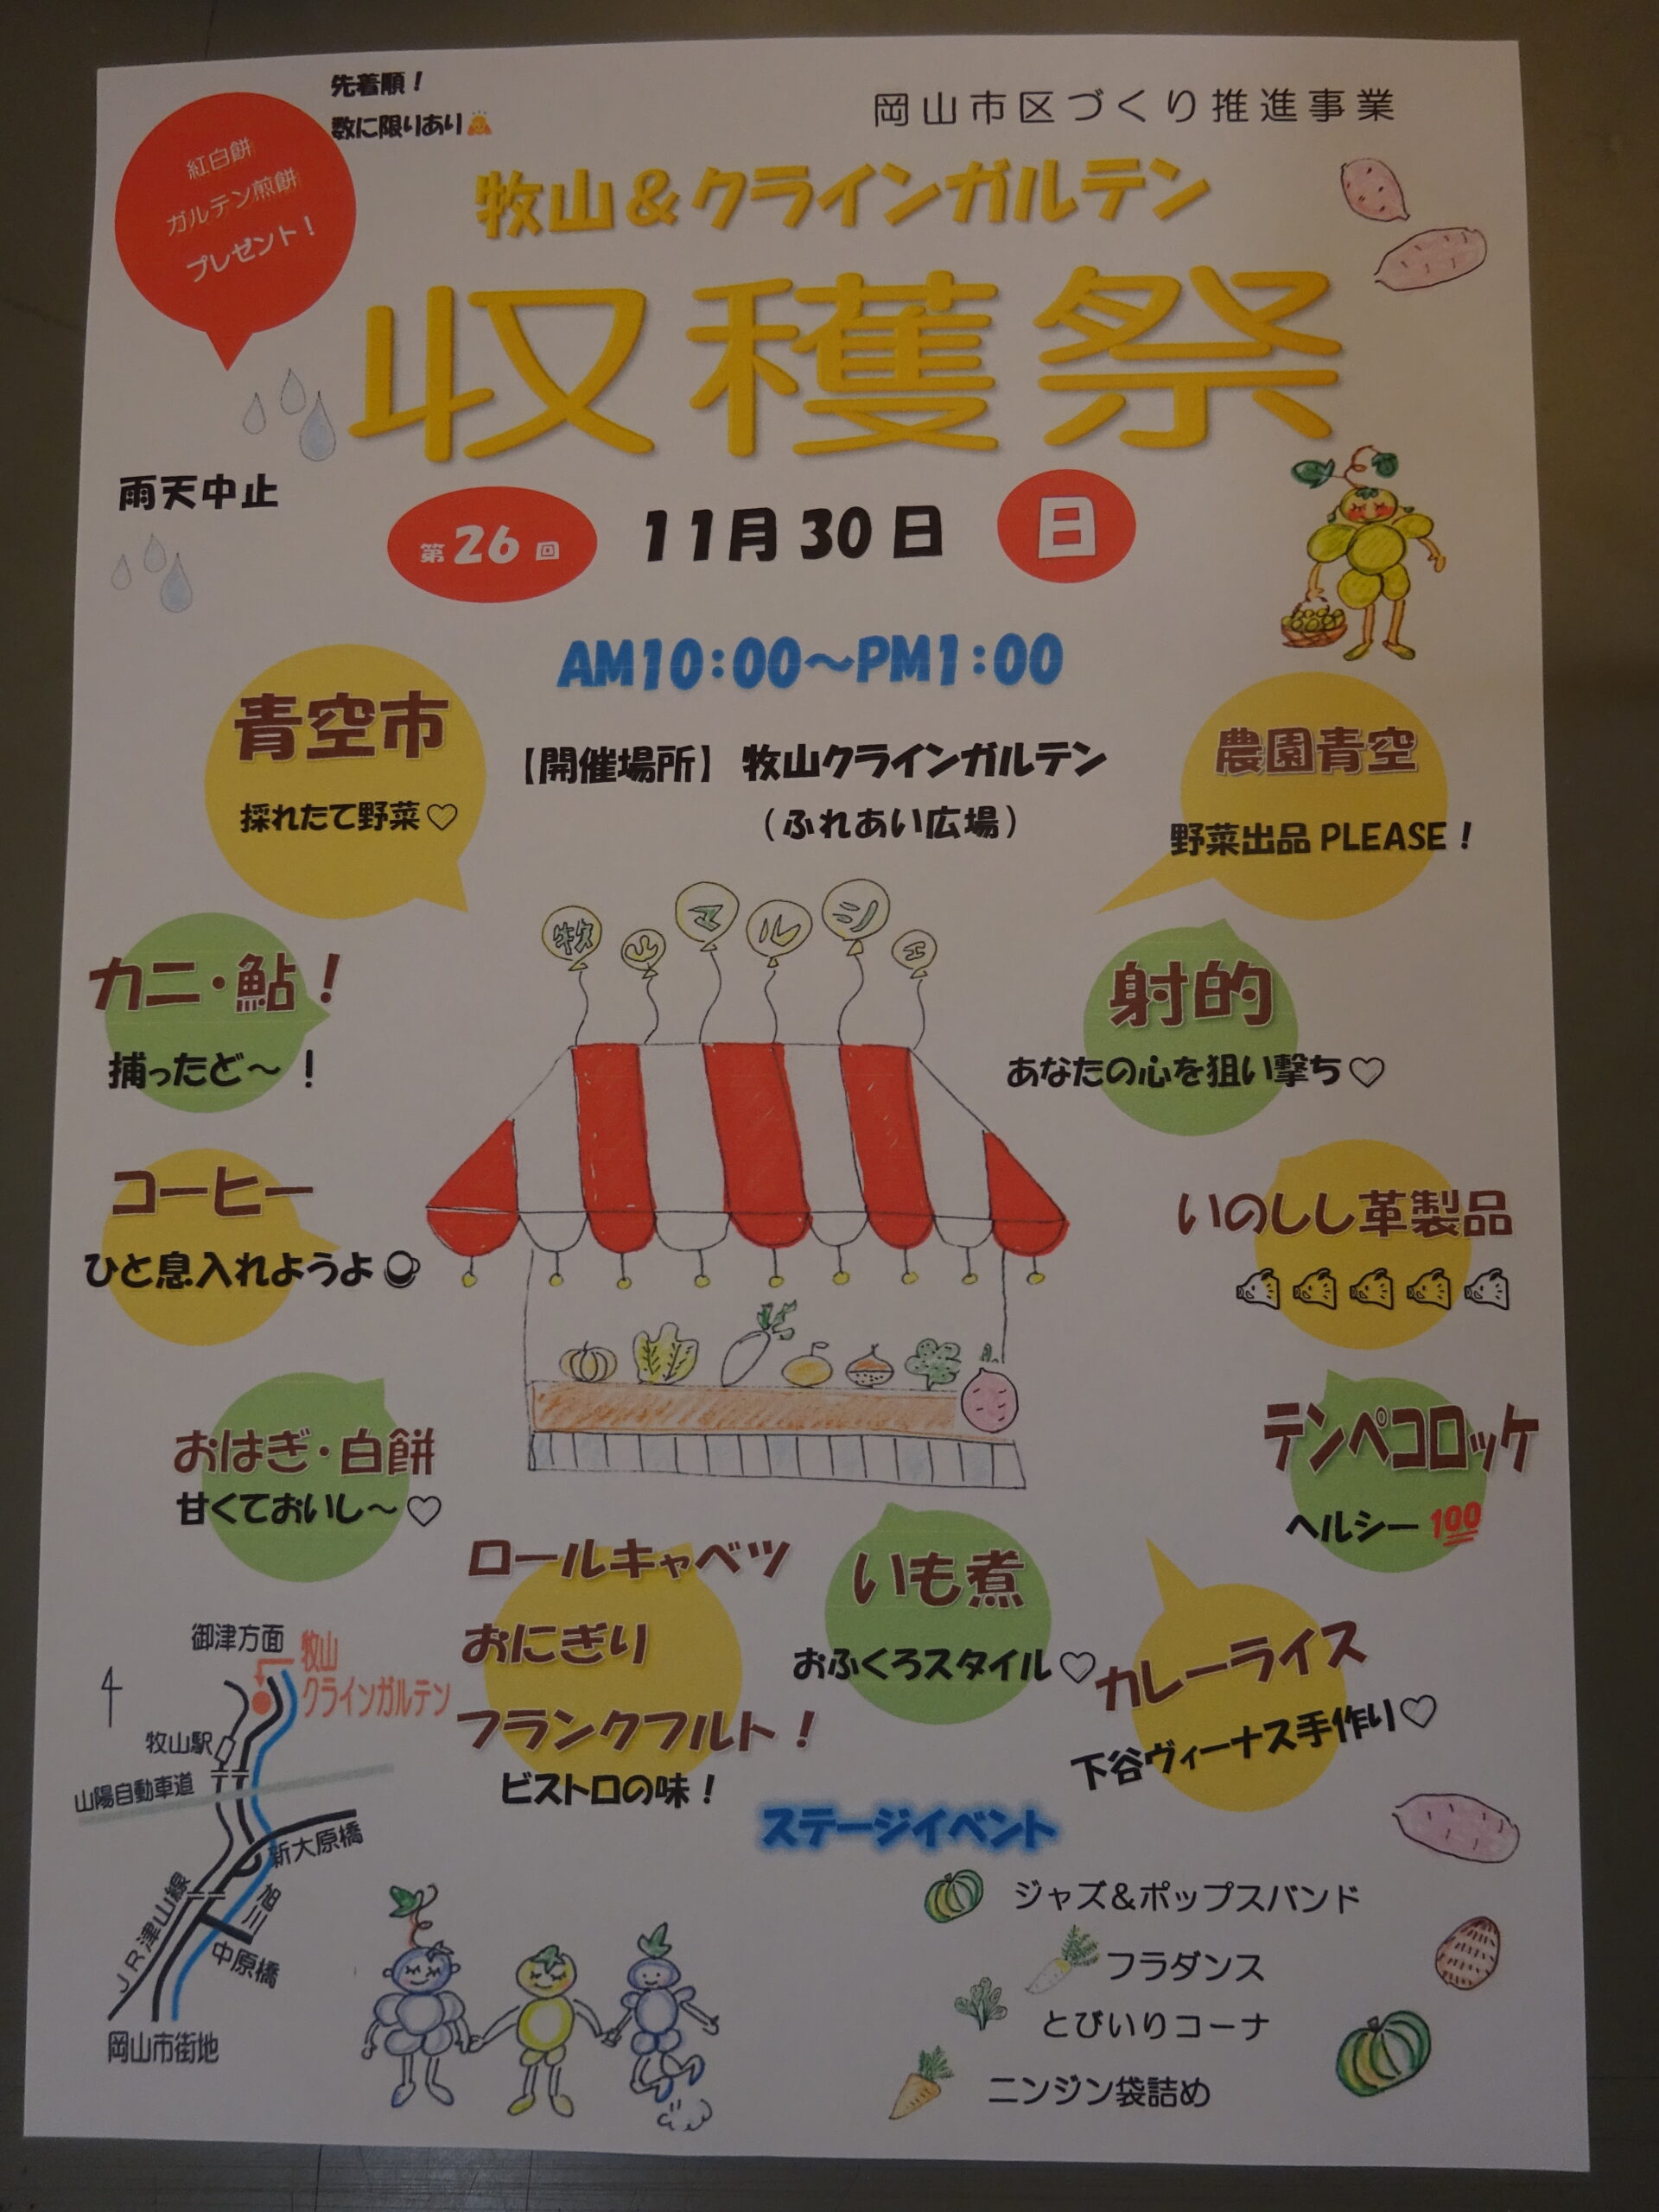 先着順！
数に限りあり
岡山市区づくり推進事業
紅白餅
ガルテン煎餅
プレゼント！
牧山＆クラインガルテン
収穫祭
雨天中止
第26回 11月30日 日
AM10：00～PM1：00
【開催場所】 牧山クラインガルテン
（ふれあい広場）
青空市
採れたて野菜♡
農園青空
野菜出品 PLEASE！
牧山マルシェ
カニ・鮎！
捕ったど～！
射的
あなたの心を狙い撃ち♡
コーヒー
ひと息入れようよ
いのしし革製品
おはぎ・白餅
甘くておいし～♡
テンペコロッケ
ヘルシー 100
ロールキャベツ
おにぎり
フランクフルト！
ビストロの味！
いも煮
おふくろスタイル♡
カレーライス
下谷ヴィーナス手作り♡
御津方面
牧山
クラインガルテン
牧山駅
山陽自動車道
新大原橋
旭川
JR津山線
中原橋
岡山市街地
ステージイベント
ジャズ＆ポップスバンド
フラダンス
とびいりコーナ
ニンジン袋詰め